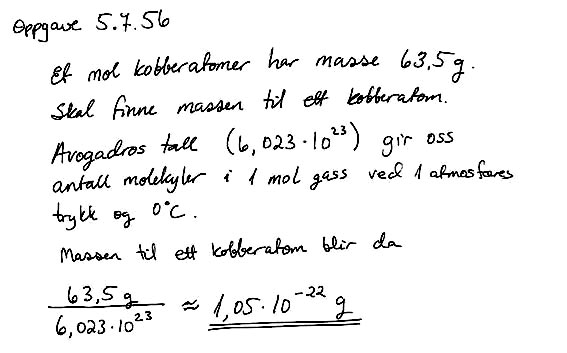 Oppgave 5.7.56
Et mol kobberatomer har masse 63,5 g.
Skal finne massen til ett kobberatom.
Avogadros tall (6,023·10²³) gir oss
antall molekyler i 1 mol gass ved 1 atmosfæres
trykk og 0°C.
Massen til ett kobberatom blir da
63,5 g / 6,023·10²³ ≈ 1,05·10⁻²² g